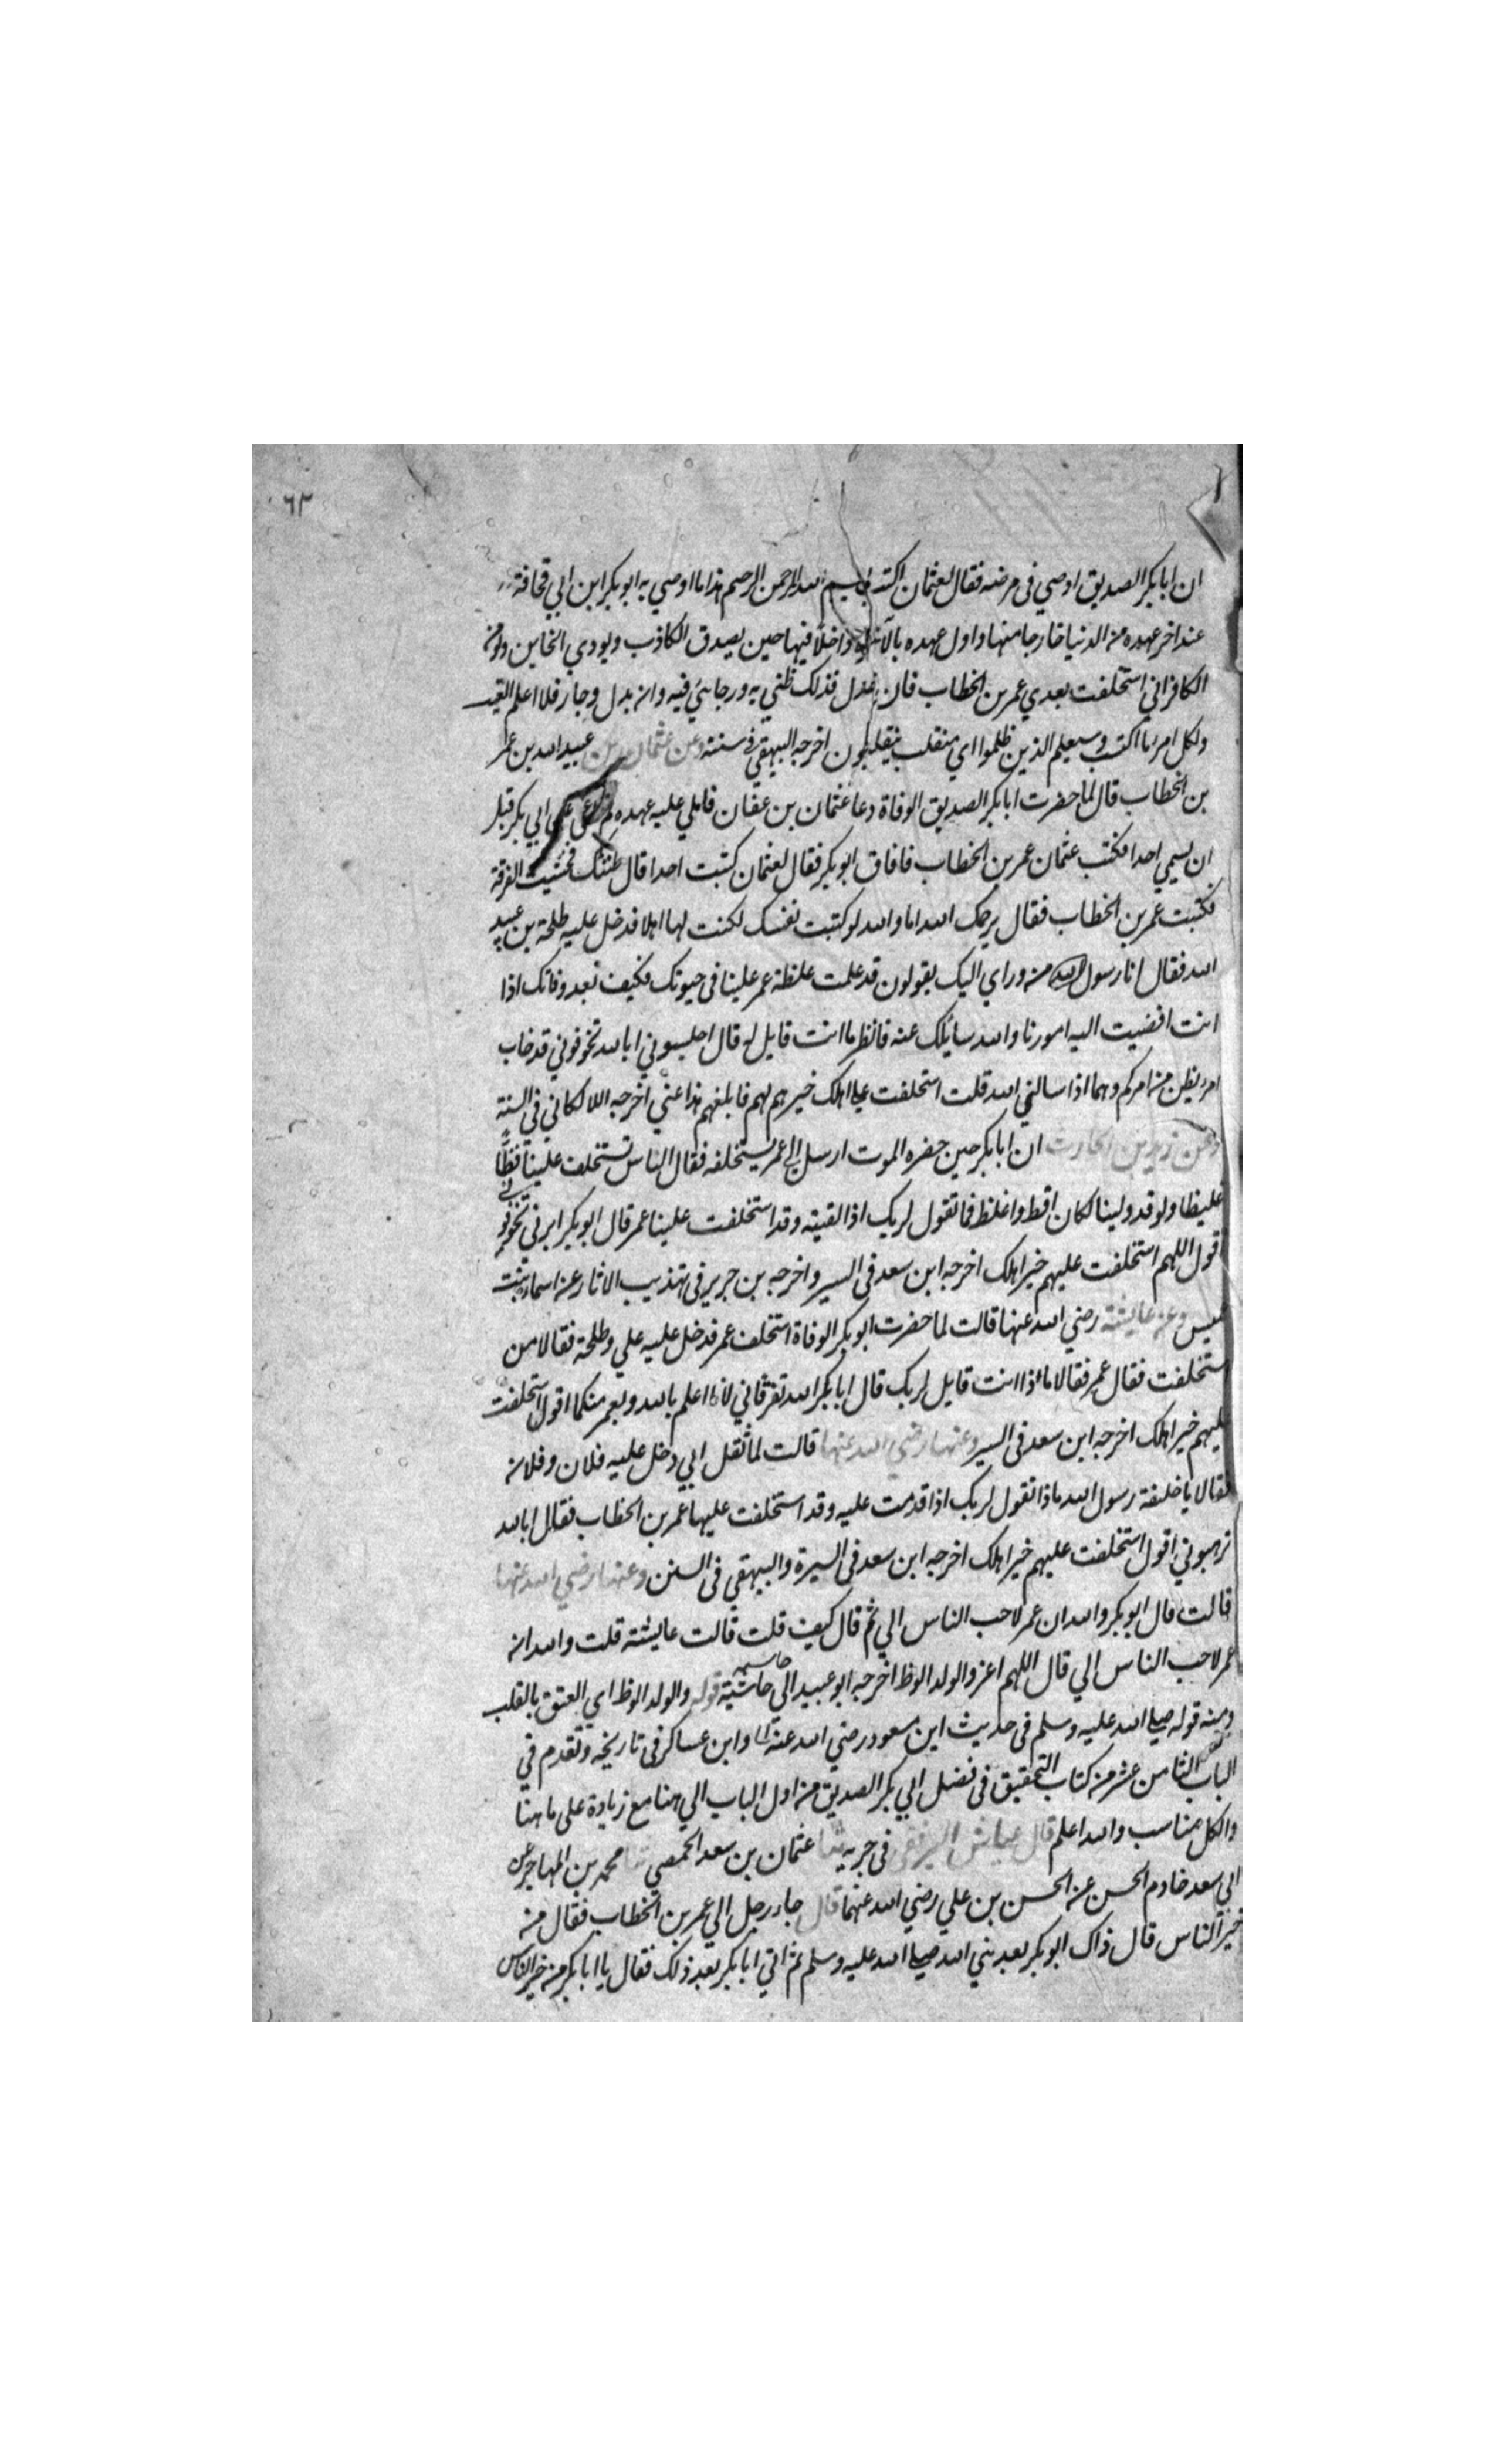 ٦٣
ان ابا بكر الصديق اوصي في مرضه فقال لعثمان اكتب بسم الله الرحمن الرحيم هذا ما اوصي به ابو بكر ابن ابي قحافة
عند اخر عهده من الدنيا خارجا منها واول عهده بالآخرة داخلا فيها حين يصدق الكاذب ويودي الخاين ويومن
الكافر اني استخلفت بعدي عمر بن الخطاب فان عدل فذلك ظني به ورجائي فيه وان بدل وجار فلا اعلم الغيب
ولكل امرء ما اكتسب وسيعلم الذين ظلموا اي منقلب ينقلبون اخرجه البيهقي في سننه وعن عثمان بن عبيد الله بن عمر
بن الخطاب قال لما حضرت ابا بكر الصديق الوفاة دعا عثمان بن عفان فاملي عليه عهده ثم اغمي علي ابي بكر قبل
ان يسمي احدا فكتب عثمان عمر بن الخطاب فافاق ابو بكر فقال لعثمان كتبت احدا قال ظننتك فخشيت الفرقة
فكتبت عمر بن الخطاب فقال يرحمك الله اما والله لو كتبت نفسك لكنت لها اهلا فدخل عليه طلحة بن عبيد
الله فقال انا رسول من وراي اليك يقولون قد علمت غلظة عمر علينا في حيوتك فكيف بعد وفاتك اذا
انت افضيت اليه امورنا والله سائلك عنه فانظر ما انت قايل له قال اجلسوني ابا لله تخوفوني قد خاب
امرء ظن من امركم وهما اذا سالني الله قلت استخلفت علي اهلك خيرهم لهم فابلغهم هذا عني اخرجه اللالكائي في السنة
وعن زيد بن الحارث ان ابا بكر حين حضره الموت ارسل الي عمر يستخلفه فقال الناس تستخلف علينا فظا
غليظا ولو قد ولينا لكان افظ واغلظ فما تقول لربك اذا لقيته وقد استخلفت علينا عمر قال ابو بكر ابربي تخوفوني
اقول اللهم استخلفت عليهم خير اهلك اخرجه ابن سعد في السير واخرجه بن جرير في تهذيب الاثار عن اسماء بنت
عميس وعن عايشة رضي الله عنها قالت لما حضرت ابو بكر الوفاة استخلف عمر فدخل عليه علي وطلحة فقالا من
استخلفت فقال عمر فقالا ماذا انت قايل لربك قال ابا بكر الله تفرقاني لانا اعلم بالله وبعمر منكما اقول استخلفت
عليهم خير اهلك اخرجه ابن سعد في السير وعنها رضي الله عنها قالت لما ثقل ابي دخل عليه فلان وفلان
فقالا يا خليفة رسول الله ماذا تقول لربك اذا قدمت عليه وقد استخلفت عليها عمر بن الخطاب فقال ابا لله
ترهبوني اقول استخلفت عليهم خير اهلك اخرجه ابن سعد في السيرة والبيهقي في السنن وعنها رضي الله عنها
قالت قال ابو بكر والله ان عمر لاحب الناس الي ثم قال كيف قلت قالت عايشة قلت والله انه
عمر لاحب الناس الي قال اللهم اعز والولد الوظ اخرجه ابو عبيد الي حاشية قوله والولد الوظ اي العتق بالقلب
ومنه قوله صلي الله عليه وسلم في حديث ابن مسعود رضي الله عنه وابن عساكر في تاريخه وتقدم في
الباب الثامن عشر من كتاب التحقيق في فضل ابي بكر الصديق من اول الباب الي هنا مع زيادة علي ما هنا
والكل مناسب والله اعلم قال عباش في جزيه ثنا عثمان بن سعد الحمصي ثنا محمد بن المهاجر عن
ابي سعد خادم الحسن عن الحسن بن علي رضي الله عنهما قال جاء رجل الي عمر بن الخطاب فقال من
خير الناس قال ذاك ابو بكر بعد نبي الله صلي الله عليه وسلم ثم اتي ابا بكر بعد ذلك فقال يا ابا بكر من خير الناس